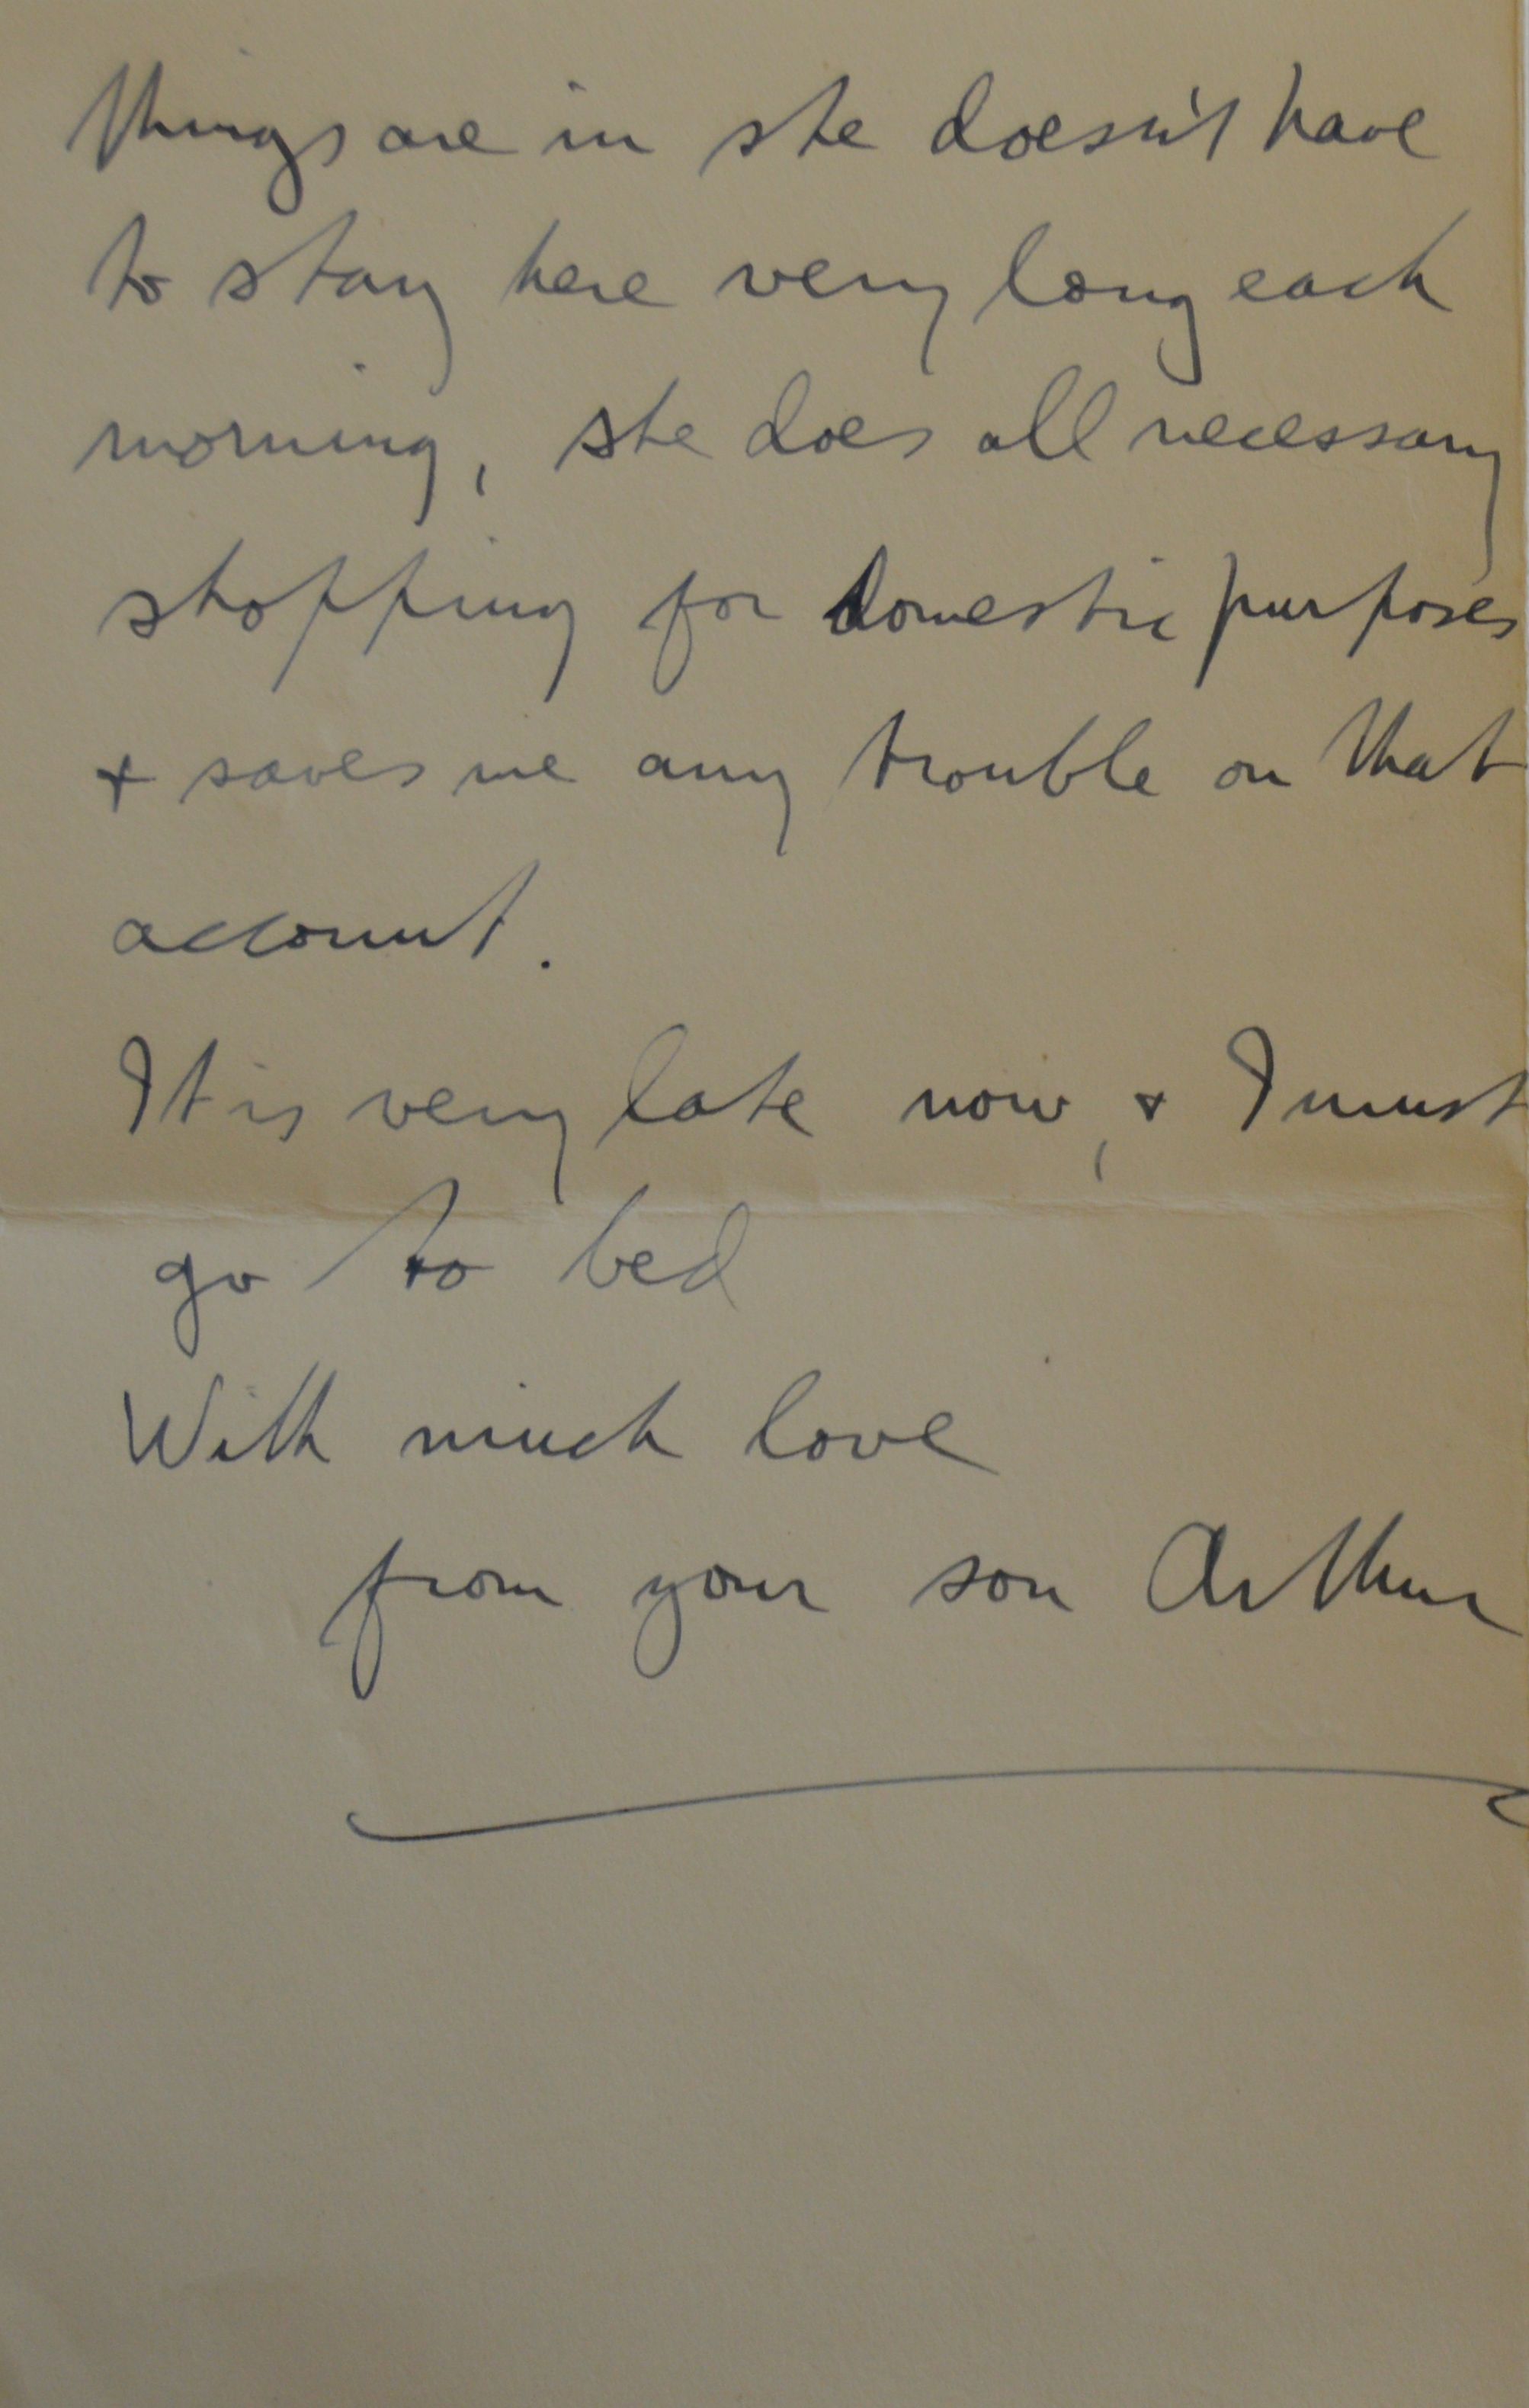 things are in she doesn't have
to stay here very long each
morning, she does all necessary
shopping for domestic purposes
& saves me any trouble on that
account.
It is very late now, & I must
go to bed
With much love
from your son Arthur